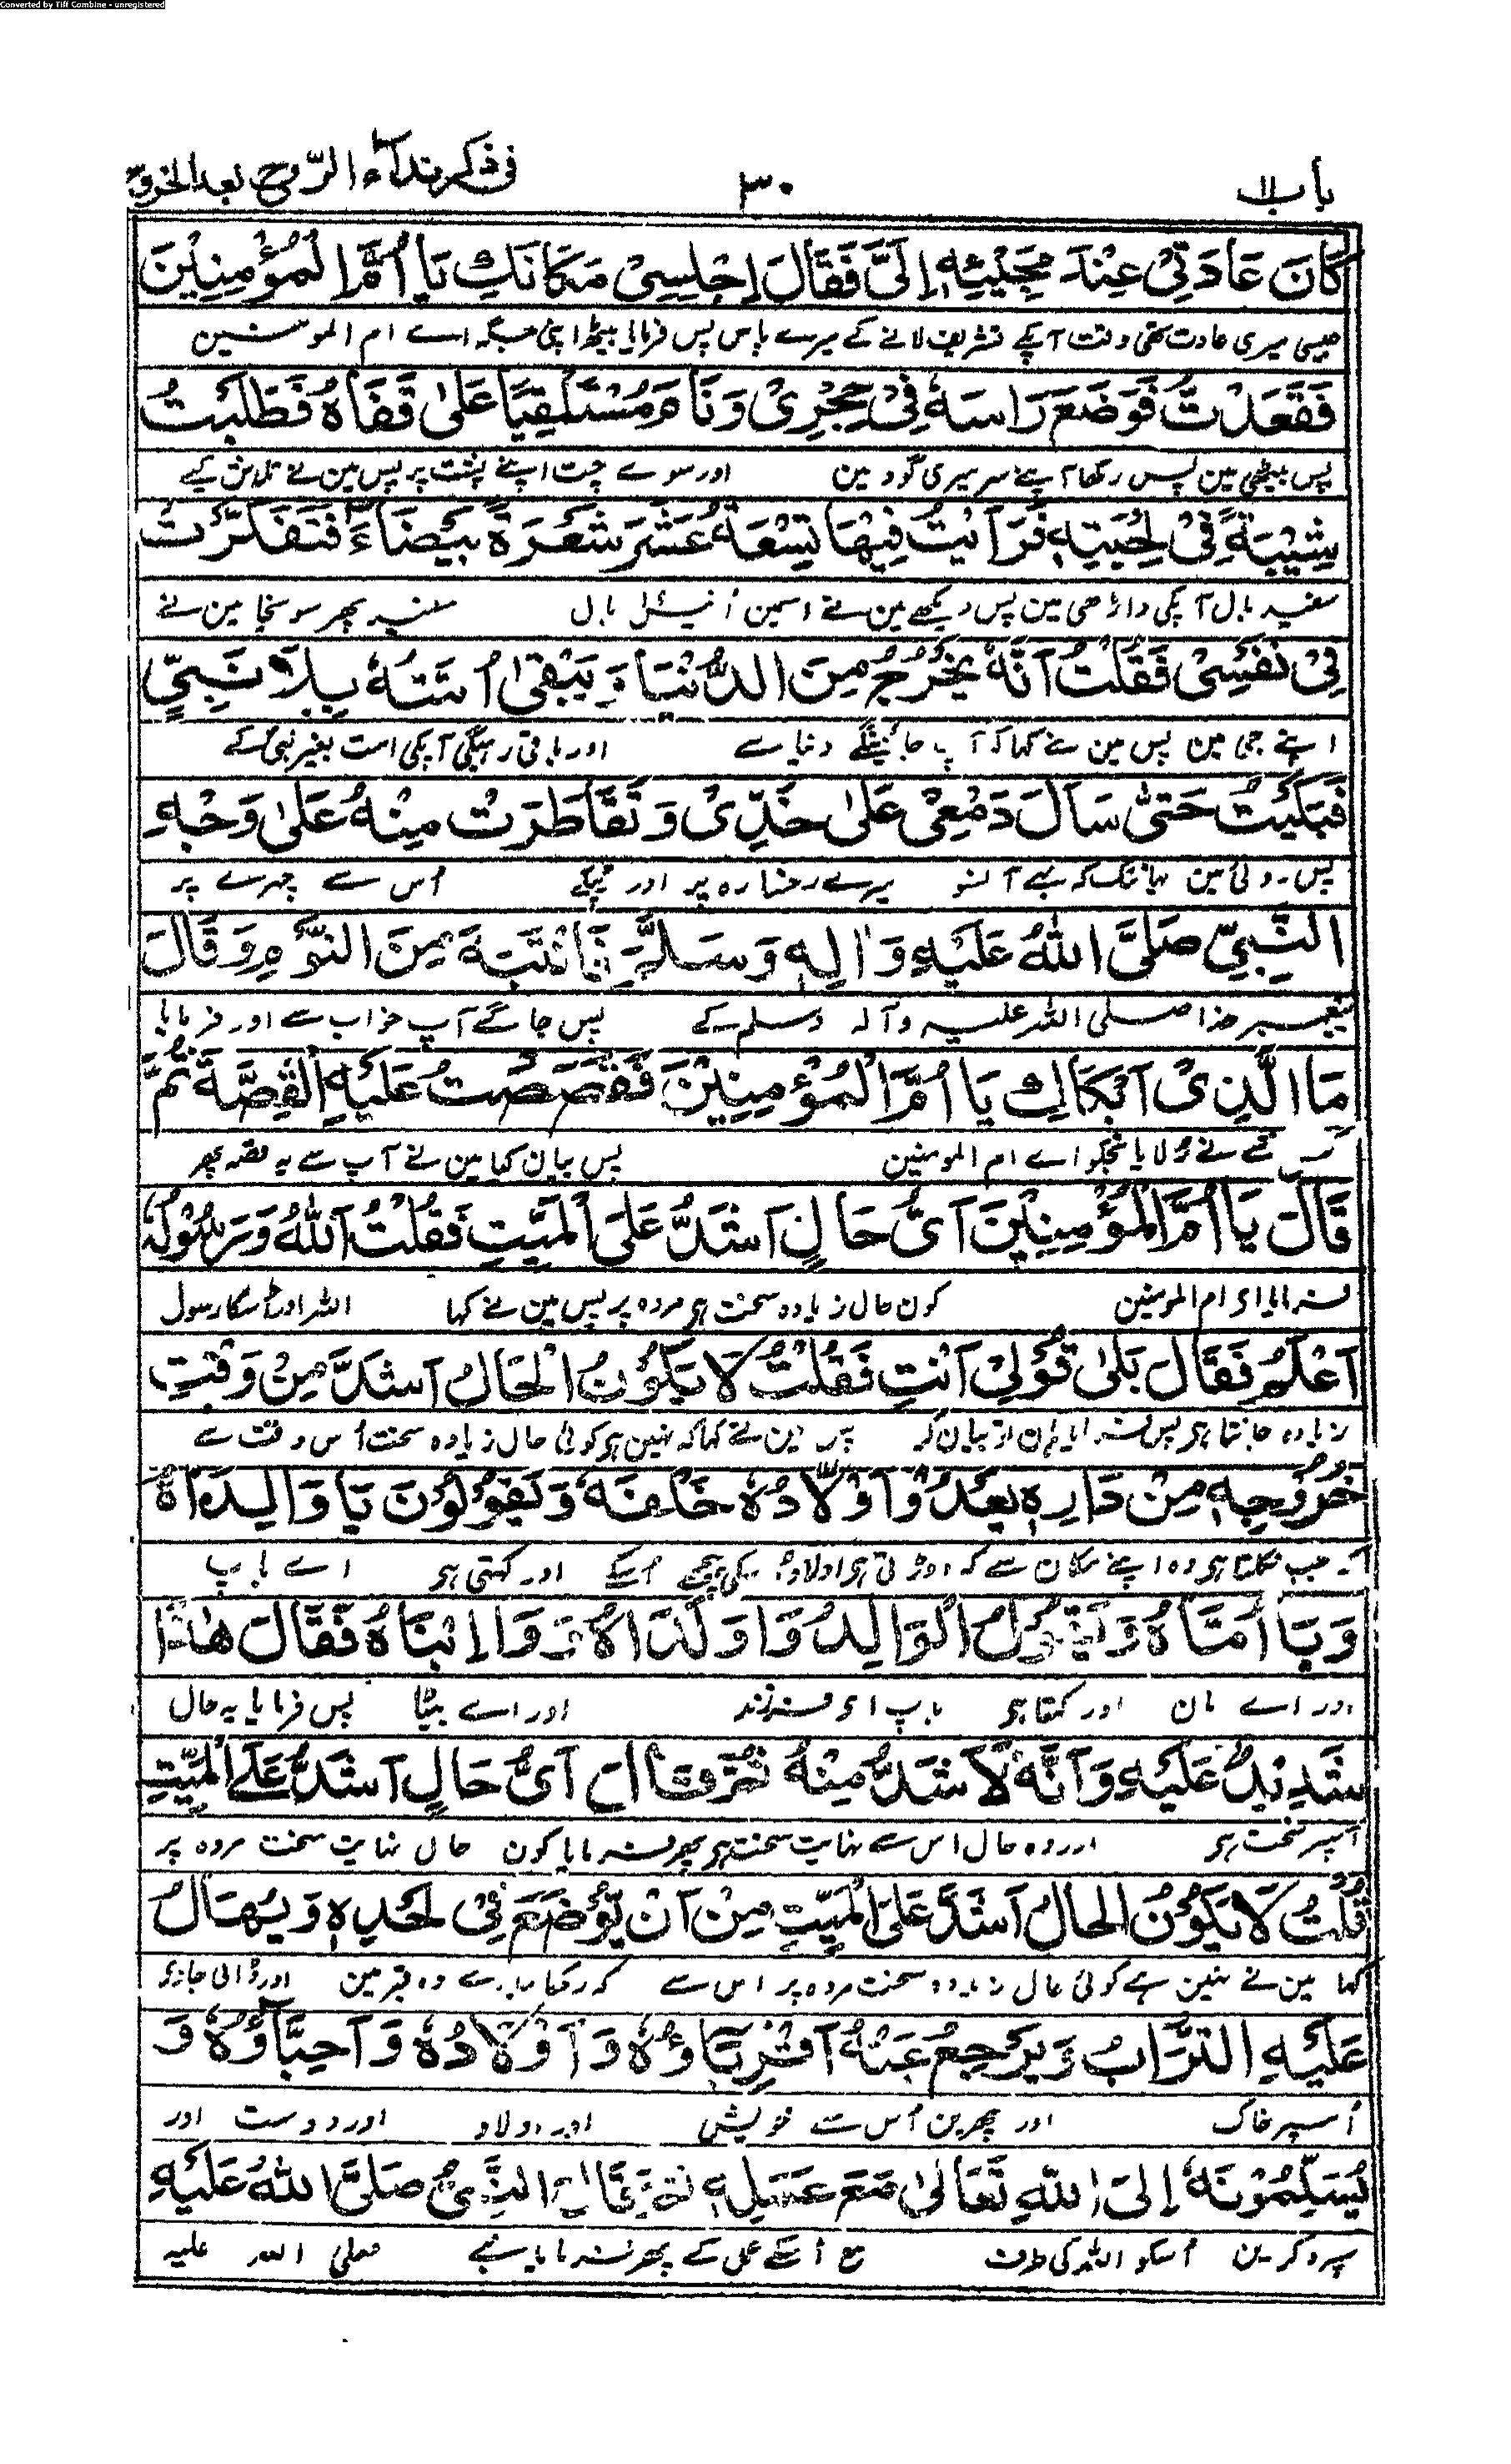 Converted by Tiff Combine - unregistered
باب ۱۱ ۳۰ فی ذکر نداء الرّوح بعد الخروج
كَانَ عَادَتِيْ عِنْدَ مَجِيْئِهٖ اِلَيَّ فَقَالَ اِجْلِسِيْ مَكَانَكِ يَا اُمَّ الْمُؤْمِنِيْنَ
جیسی میری عادت تھی وقت آپکے تشریف لانے کے میرے پاس پس فرمایا بیٹھ اپنی جگہ اے ام المومنین
فَقَعَدْتُ فَوَضَعَ رَاسَهٗ فِيْ حِجْرِيْ وَنَامَ مُسْتَلْقِيًا عَلٰى قَفَاهُ فَطَلَبْتُ
پس بیٹھی مین پس رکھا آپنے سر میری گود مین اور سوے چت اپنے پشت پر پس مین نے تلاش کیے
شَيْبَةً فِيْ لِحْيَتِهٖ فَرَاَيْتُ فِيْهَا تِسْعَةَ عَشَرَ شَعْرَةً بَيْضَاءَ فَتَفَكَّرْتُ
سفید بال آپکی داڑھی مین پس دیکھے مین نے اسمین اُنیس بال سفید پھر سونچا مین نے
فِيْ نَفْسِيْ فَقُلْتُ اَنَّهٗ يَخْرُجُ مِنَ الدُّنْيَا وَيَبْقٰى اُمَّتُهٗ بِلَا نَبِيٍّ
اپنے جی مین پس مین نے کہا کہ آپ جائینگے دنیا سے اور باقی رہیگی آپکی امت بغیر نبی کے
فَبَكَيْتُ حَتّٰى سَالَ دَمْعِيْ عَلٰى خَدِّيْ وَتَقَاطَرَتْ مِنْهُ عَلٰى وَجْهِ
پس روئی مین یہانتک کہ بہے آنسو میرے رخسارہ پر اور ٹپکے اُس سے چہرے پر
النَّبِيِّ صَلَّى اللّٰهُ عَلَيْهِ وَاٰلِهٖ وَسَلَّمَ فَانْتَبَهَ مِنَ النَّوْمِ وَقَالَ
پیغمبر خدا صلی اللہ علیہ وآلہ وسلم کے پس جاگے آپ خواب سے اور فرمایا
مَا الَّذِيْ اَبْكَاكِ يَا اُمَّ الْمُؤْمِنِيْنَ فَقَصَصْتُ عَلَيْهِ الْقِصَّةَ ثُمَّ
نے رُلایا تجکو اے ام المومنین پس بیان کیا مین نے آپ سے یہ قصہ پھر
قَالَ يَا اُمَّ الْمُؤْمِنِيْنَ اَيُّ حَالٍ اَشَدُّ عَلَى الْمَيِّتِ فَقُلْتُ اَللّٰهُ وَرَسُوْلُهٗ
فرمایا ای ام المومنین کون حال زیادہ سخت ہی مردہ پر پس مین نے کہا اللہ اور اُسکا رسول
اَعْلَمُ فَقَالَ بَلٰى قُوْلِيْ اَنْتِ فَقُلْتُ لَا يَكُوْنُ الْحَالُ اَشَدَّ مِنْ وَقْتِ
زیادہ جانتا ہی پس فرمایا ہان تو بیان کر پس مین نے کہا کہ نہین ہی کوئی حال زیادہ سخت اُس وقت سے
خُرُوْجِهٖ مِنْ دَارِهٖ يَعْدُوْ اَوْلَادُهٗ خَلْفَهٗ وَيَقُوْلُوْنَ يَا وَالِدَاهُ
کہ جب نکلتا ہی وہ اپنے مکان سے کہ دوڑتی ہی اولاد پیچھے اُسکے اور کہتی ہی اے باپ
وَيَا اُمَّاهُ وَيَقُوْلُ الْوَالِدُ وَا وَلَدَاهُ وَوَا اِبْنَاهُ فَقَالَ هٰذَا
اور اے مان اور کہتا ہی باپ ای فرزند اور اے بیٹا پس فرمایا یہ حال
شَدِيْدٌ عَلَيْهِ وَاَنَّهٗ لَاَشَدُّ مِنْهُ ثُمَّ قَالَ اَيُّ حَالٍ اَشَدُّ عَلَى الْمَيِّتِ
اُسپر سخت ہی اور وہ حال اس سے نہایت سخت ہی پھر فرمایا کون حال نہایت سخت مردہ پر
قُلْتُ لَا يَكُوْنُ الْحَالُ اَشَدَّ عَلَى الْمَيِّتِ مِنْ اَنْ يُّوْضَعَ فِيْ لَحْدِهٖ وَيُهَالُ
کہا مین نے نہین ہے کوئی حال زیادہ سخت مردہ پر اس سے کہ رکھا جاوے وہ قبر مین اور ڈالی جاوی
عَلَيْهِ التُّرَابُ وَيَرْجِعُ عَنْهُ اَقْرِبَاؤُهٗ وَ اَوْلَادُهٗ وَاَحِبَّاؤُهٗ وَ
اُسپر خاک اور پھرین اُس سے خویش اور اولاد اور دوست اور
يُسَلِّمُوْنَهٗ اِلَى اللّٰهِ تَعَالٰى مَعَ عَمَلِهٖ ثُمَّ قَالَ النَّبِيُّ صَلَّى اللّٰهُ عَلَيْهِ
سپرد کرین اُسکو اللہ کی طرف مع اُسکے عمل کے پھر فرمایا نبی صلی اللہ علیہ